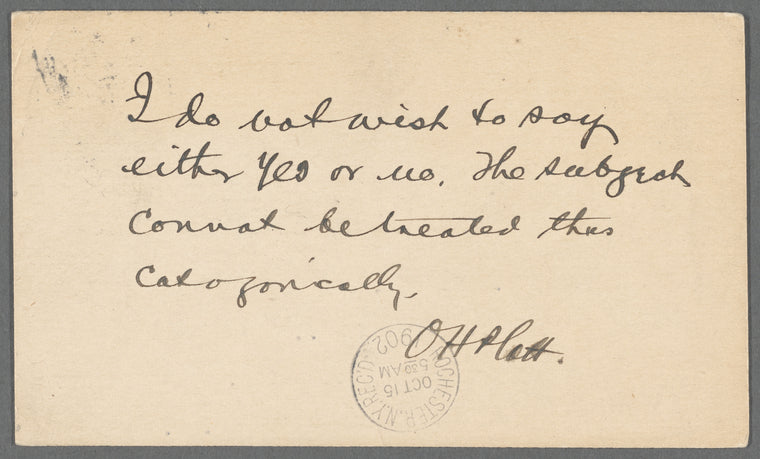 I do not wish to say
either Yes or no. The subject
cannot be treated thus
Catogorically.
O H Platt.
ROCHESTER, N.Y. REC'D.
OCT 15
5 30 AM
1902